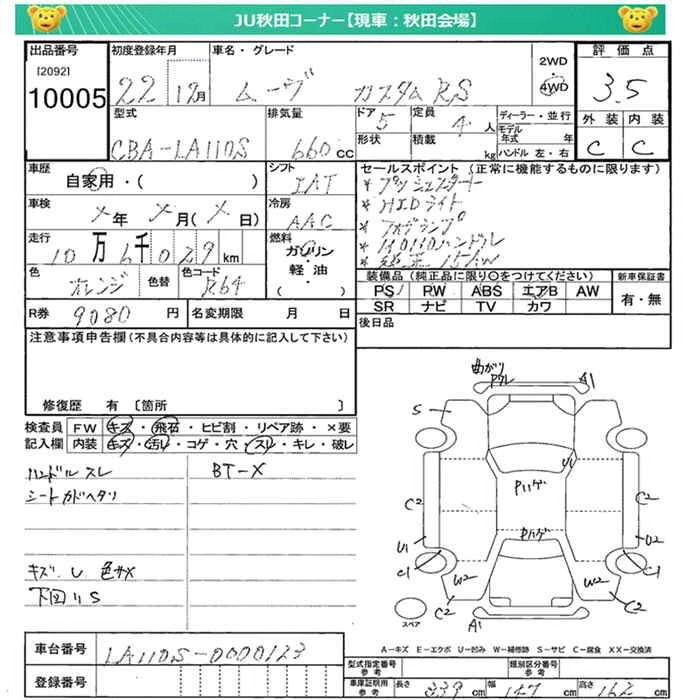 JU秋田コーナー【現車：秋田会場】
出品番号 初度登録年月 車名・グレード 2WD 評価点
[2092]
10005 22 12月 ムーヴ カスタムRS 4WD 3.5
型式 排気量 ドア 定員 ディーラー・並行 外装 内装
CBA-LA110S 660cc 5 4人 モデル年式 年 C C
形状 積載 kg ハンドル 左・右
車歴 シフト セールスポイント (正常に機能するものに限ります)
自家用・( ) IAT * プッシュスタート
車検 冷房 * HIDライト
メ年 メ月(メ日) AAC * フォグランプ
走行 燃料 * MOMOハンドル
10万6千029km ガソリン * 純正15AW
色 色替 色コード 軽・油
オレンジ R64 ( )
装備品 (純正品に限り○をつけてください) 新車保証書
PS PW ABS エアB AW 有・無
SR ナビ TV カワ
R券 9080円 名変期限 月 日 後日品
注意事項申告欄(不具合内容等は具体的に記入して下さい)
修復歴 有 〔箇所 〕
検査員 FW キズ・飛石・ヒビ割・リペア跡・×要
記入欄 内装 キズ・汚レ・コゲ・穴・スレ・キレ・破レ
ハンドルスレ BT-X
シートカドヘタリ
キズ、U、色サメ
下回りS
曲がり
ワレ A1
S
U1
Pハゲ
C2 C2
Pハゲ
U1 U2
C1 C1
W2 W2
C2 C2
スペア A1
A－キズ E－エクボ U－凹み W－補修跡 S－サビ C－腐食 XX－交換済
車台番号 LA110S-0000123
登録番号
型式指定番号 参考 類別区分番号 参考
車庫証明用 参考 長さ 339cm 幅 147cm 高さ 163cm